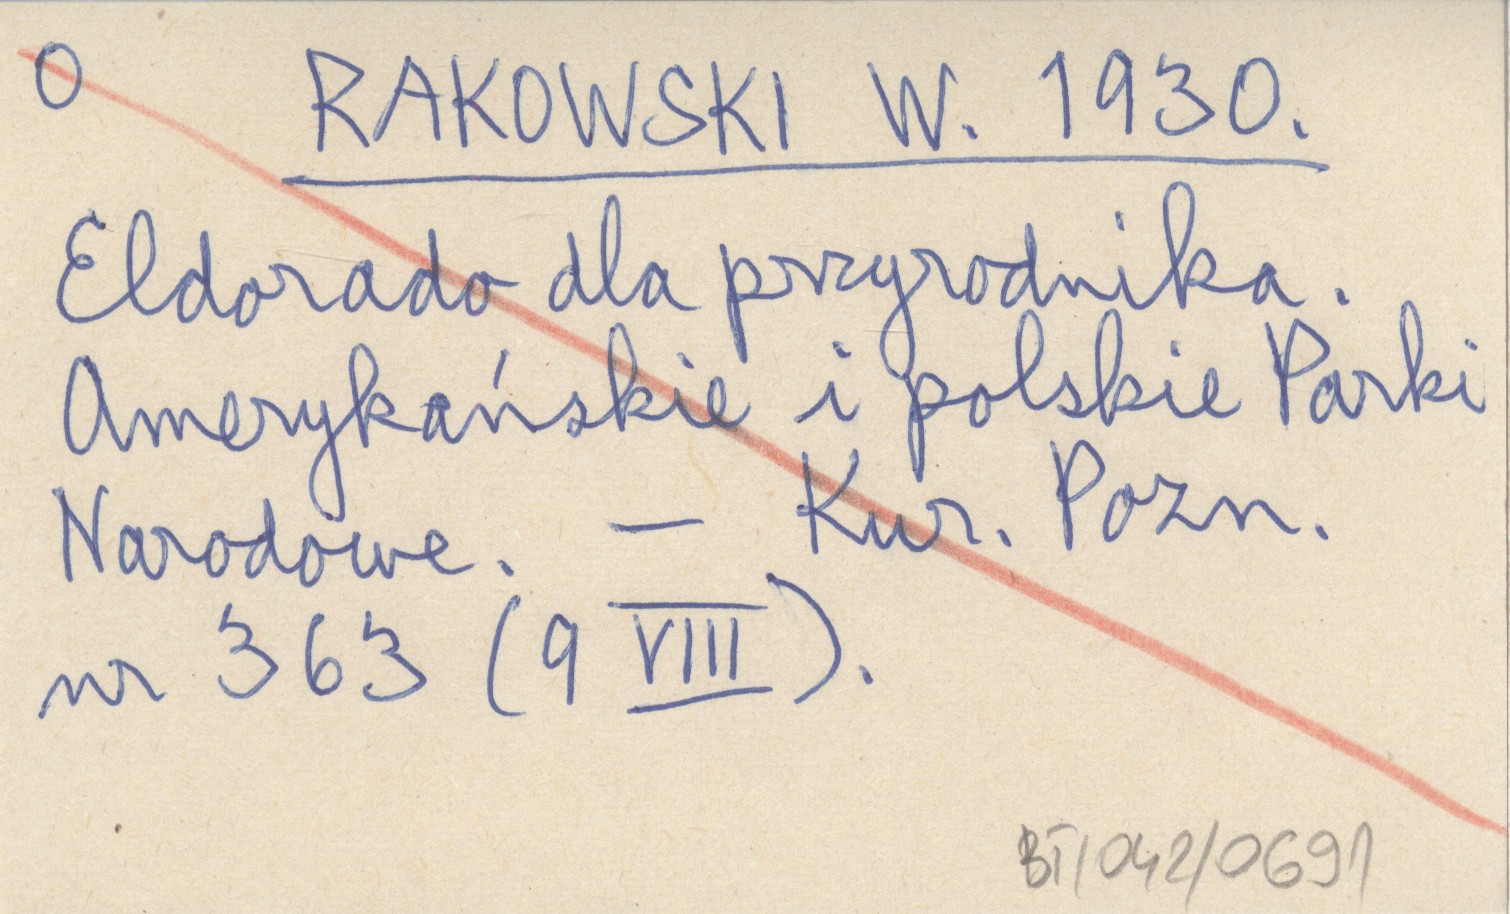 O RAKOWSKI W. 1930.
Eldorado dla przyrodnika.
Amerykańskie i polskie Parki
Narodowe. — Kur. Pozn.
nr 363 (9 VIII).
BT/042/0691